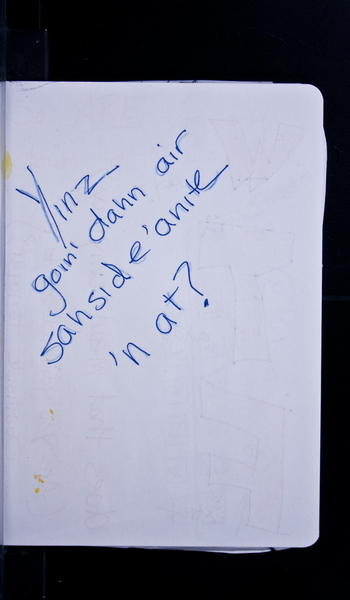 Yinz
goin' dahn air
sahside 'anite
'n at?